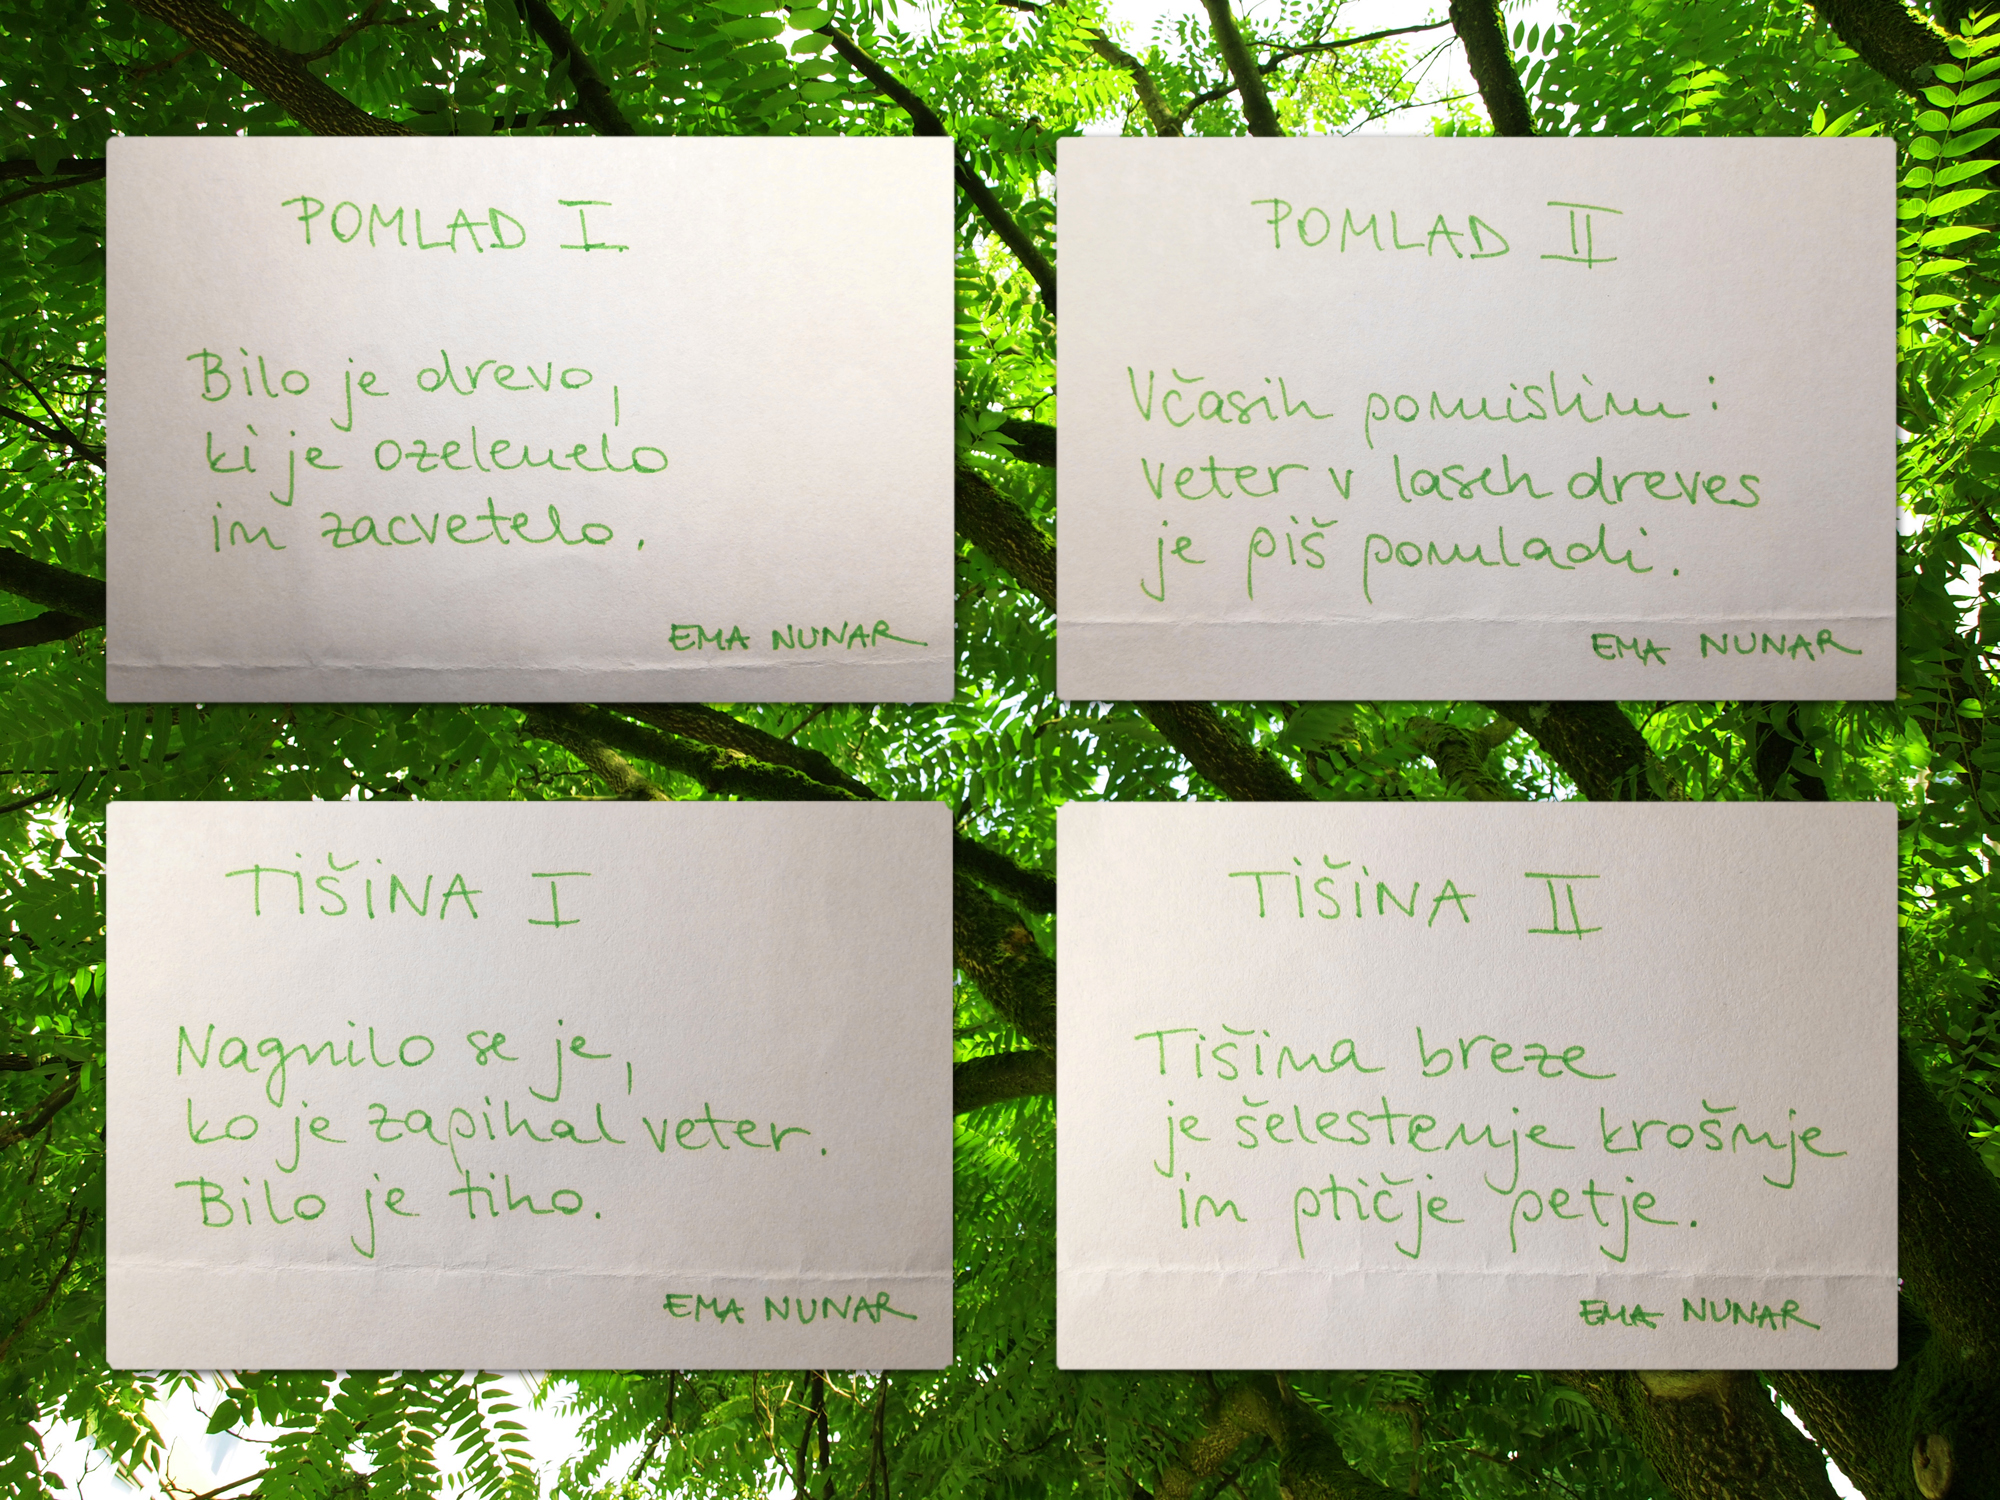 POMLAD I.
Bilo je drevo,
ki je ozelenelo
in zacvetelo.
EMA NUNAR
POMLAD II
Včasih pomislim:
veter v laseh dreves
je piš pomladi.
EMA NUNAR
TIŠINA I
Nagnilo se je,
ko je zapihal veter.
Bilo je tiho.
EMA NUNAR
TIŠINA II
Tišina breze
je šelestenje krošnje
in ptičje petje.
EMA NUNAR